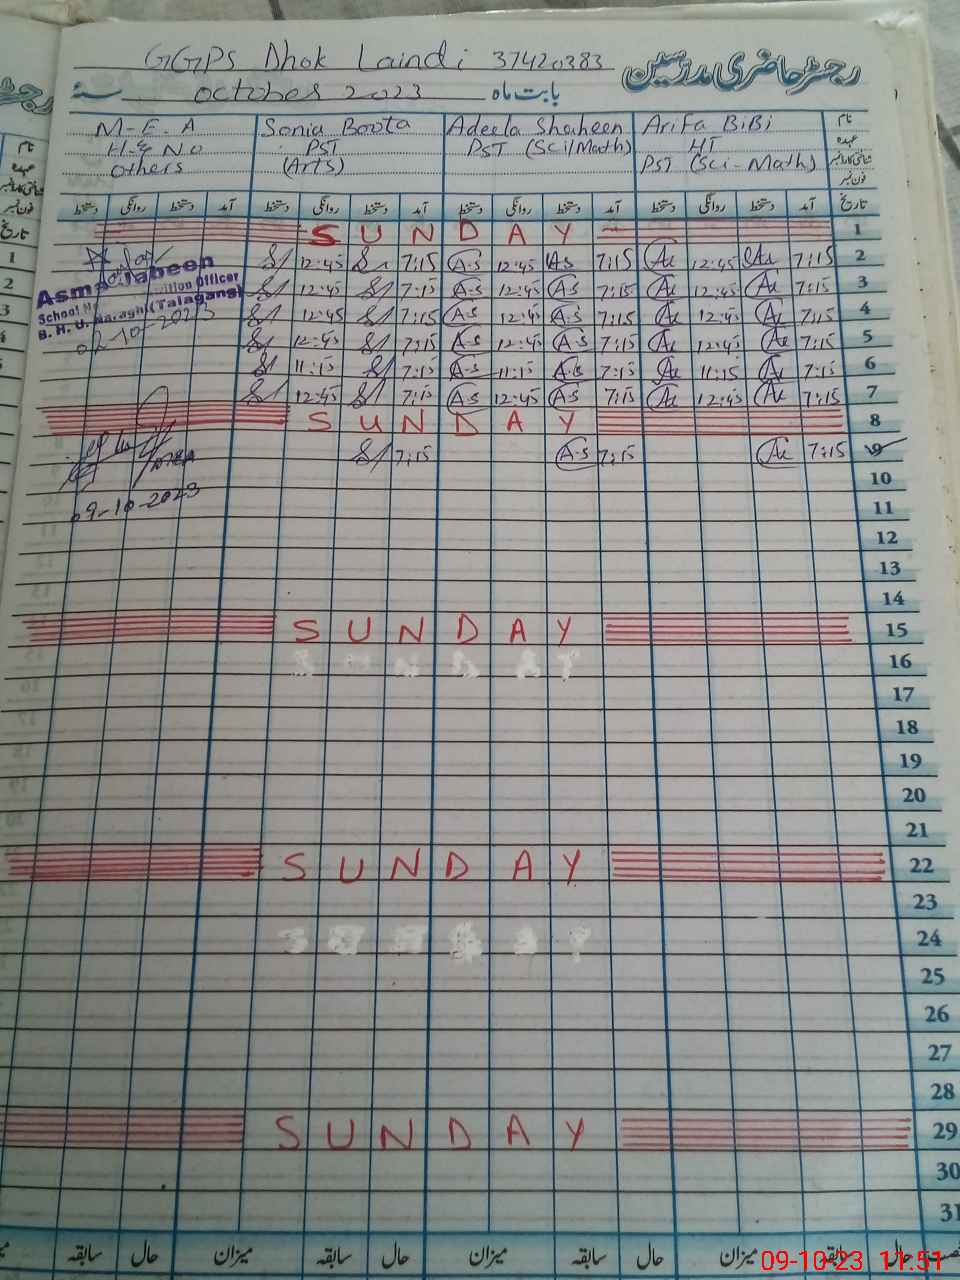 GGPS Dhok Laindi 37420383 رجسٹر حاضری مدرسین
سنۂ October 2023 بابت ماہ
M-E.A Sonia Boota Adeela Shaheen Arifa BiBi نام
H.& N.O PST PST (Sci/Math) HT عہدہ
others (Arts) PST (Sci-Math) شناختی کارڈ نمبر
فون نمبر
دستخط روانگی دستخط آمد دستخط روانگی دستخط آمد دستخط روانگی دستخط آمد دستخط روانگی دستخط آمد تاریخ
SUNDAY 1
12:45 7:15 A-S 12:45 A-S 7:15 12:45 7:15 2
12:45 7:15 A-S 12:45 A-S 7:15 12:45 7:15 3
12:45 7:15 A-S 12:45 A-S 7:15 12:45 7:15 4
12:45 7:15 A-S 12:45 A-S 7:15 12:45 7:15 5
11:15 7:15 A-S 11:15 A-S 7:15 11:15 7:15 6
12:45 7:15 A-S 12:45 A-S 7:15 12:45 7:15 7
Asma Jabeen
School H Nutrition Officer
B. H. U (Talagang)
02-10-2023
SUNDAY 8
7:15 A-S 7:15 7:15 9
MEA
09-10-2023
10
11
12
13
14
SUNDAY 15
16
17
18
19
20
21
SUNDAY 22
23
24
25
26
27
28
SUNDAY 29
30
31
سابقہ حال میزان سابقہ حال میزان سابقہ حال میزان سابقہ حال
09-10-23 11:51